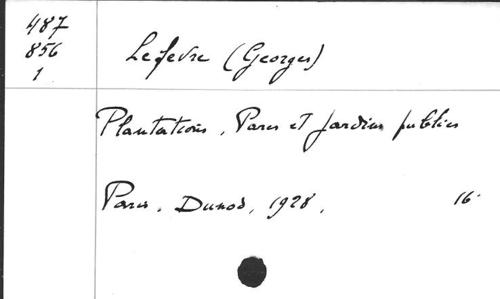 487
856
1
Lefevre (Georges)
Plantations, Parcs et Jardins publics
Paris. Dunod, 1928, 16°